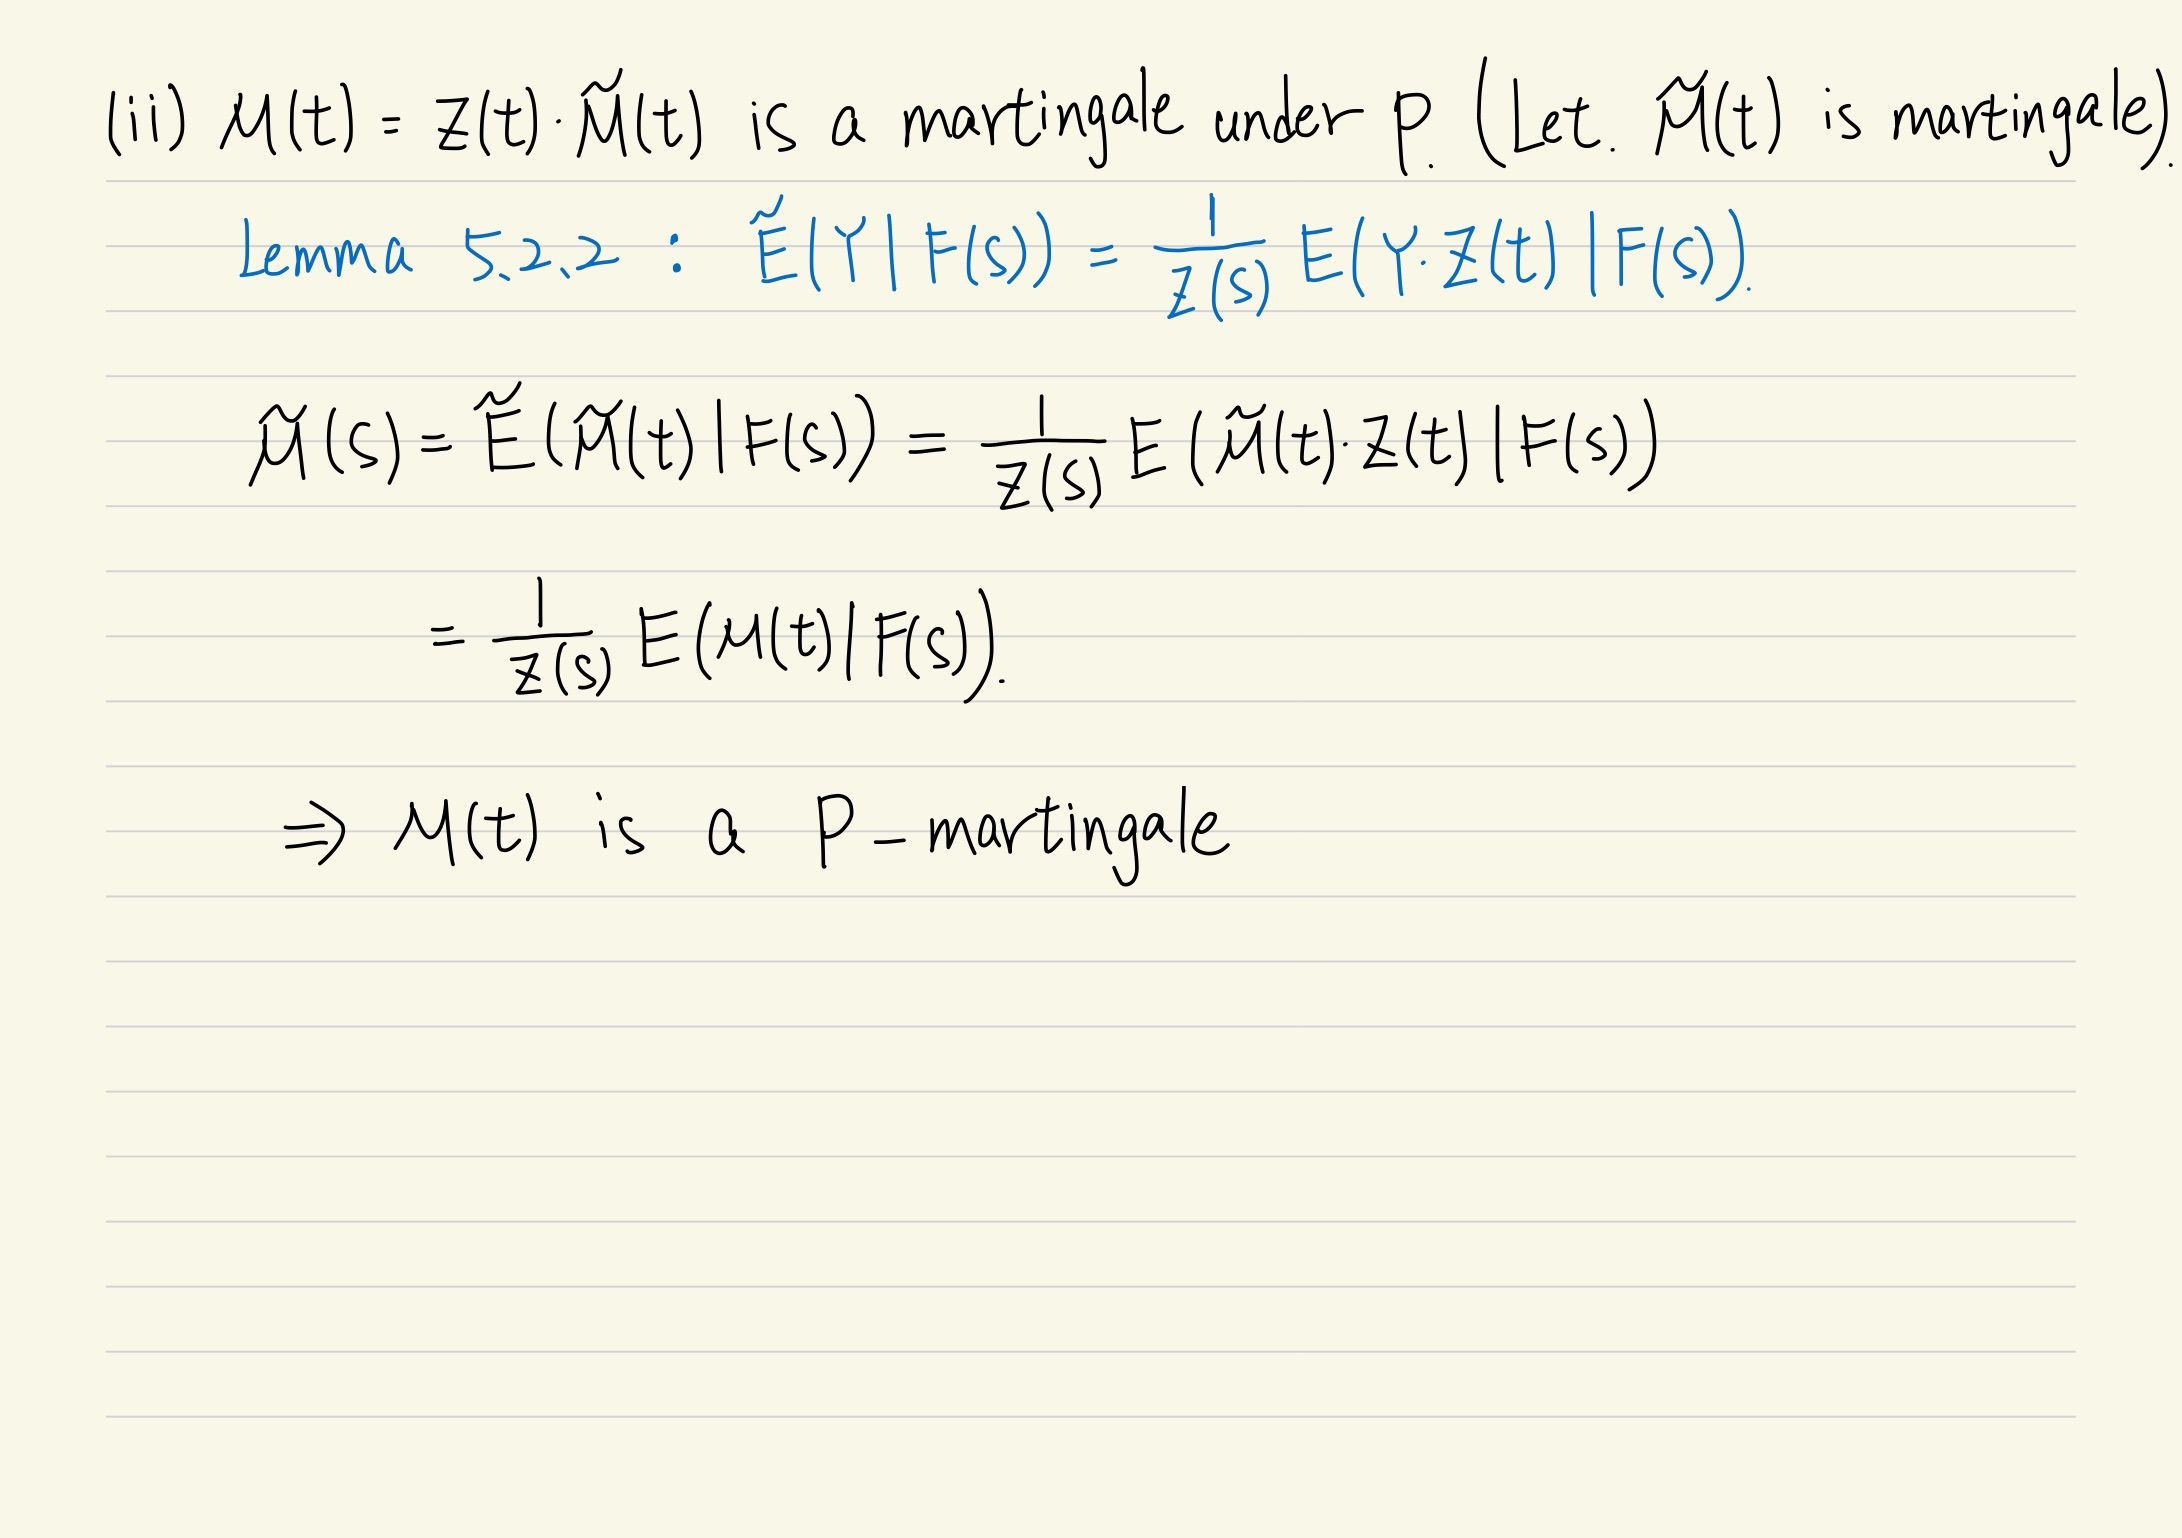 (ii) M(t) = Z(t)·M̃(t) is a martingale under P. (Let. M̃(t) is martingale).
Lemma 5.2.2 : Ẽ(Y|F(s)) = 1/Z(s) E(Y·Z(t)|F(s)).
M̃(s) = Ẽ(M̃(t)|F(s)) = 1/Z(s) E(M̃(t)·Z(t)|F(s))
= 1/Z(s) E(M(t)|F(s)).
⇒ M(t) is a P-martingale